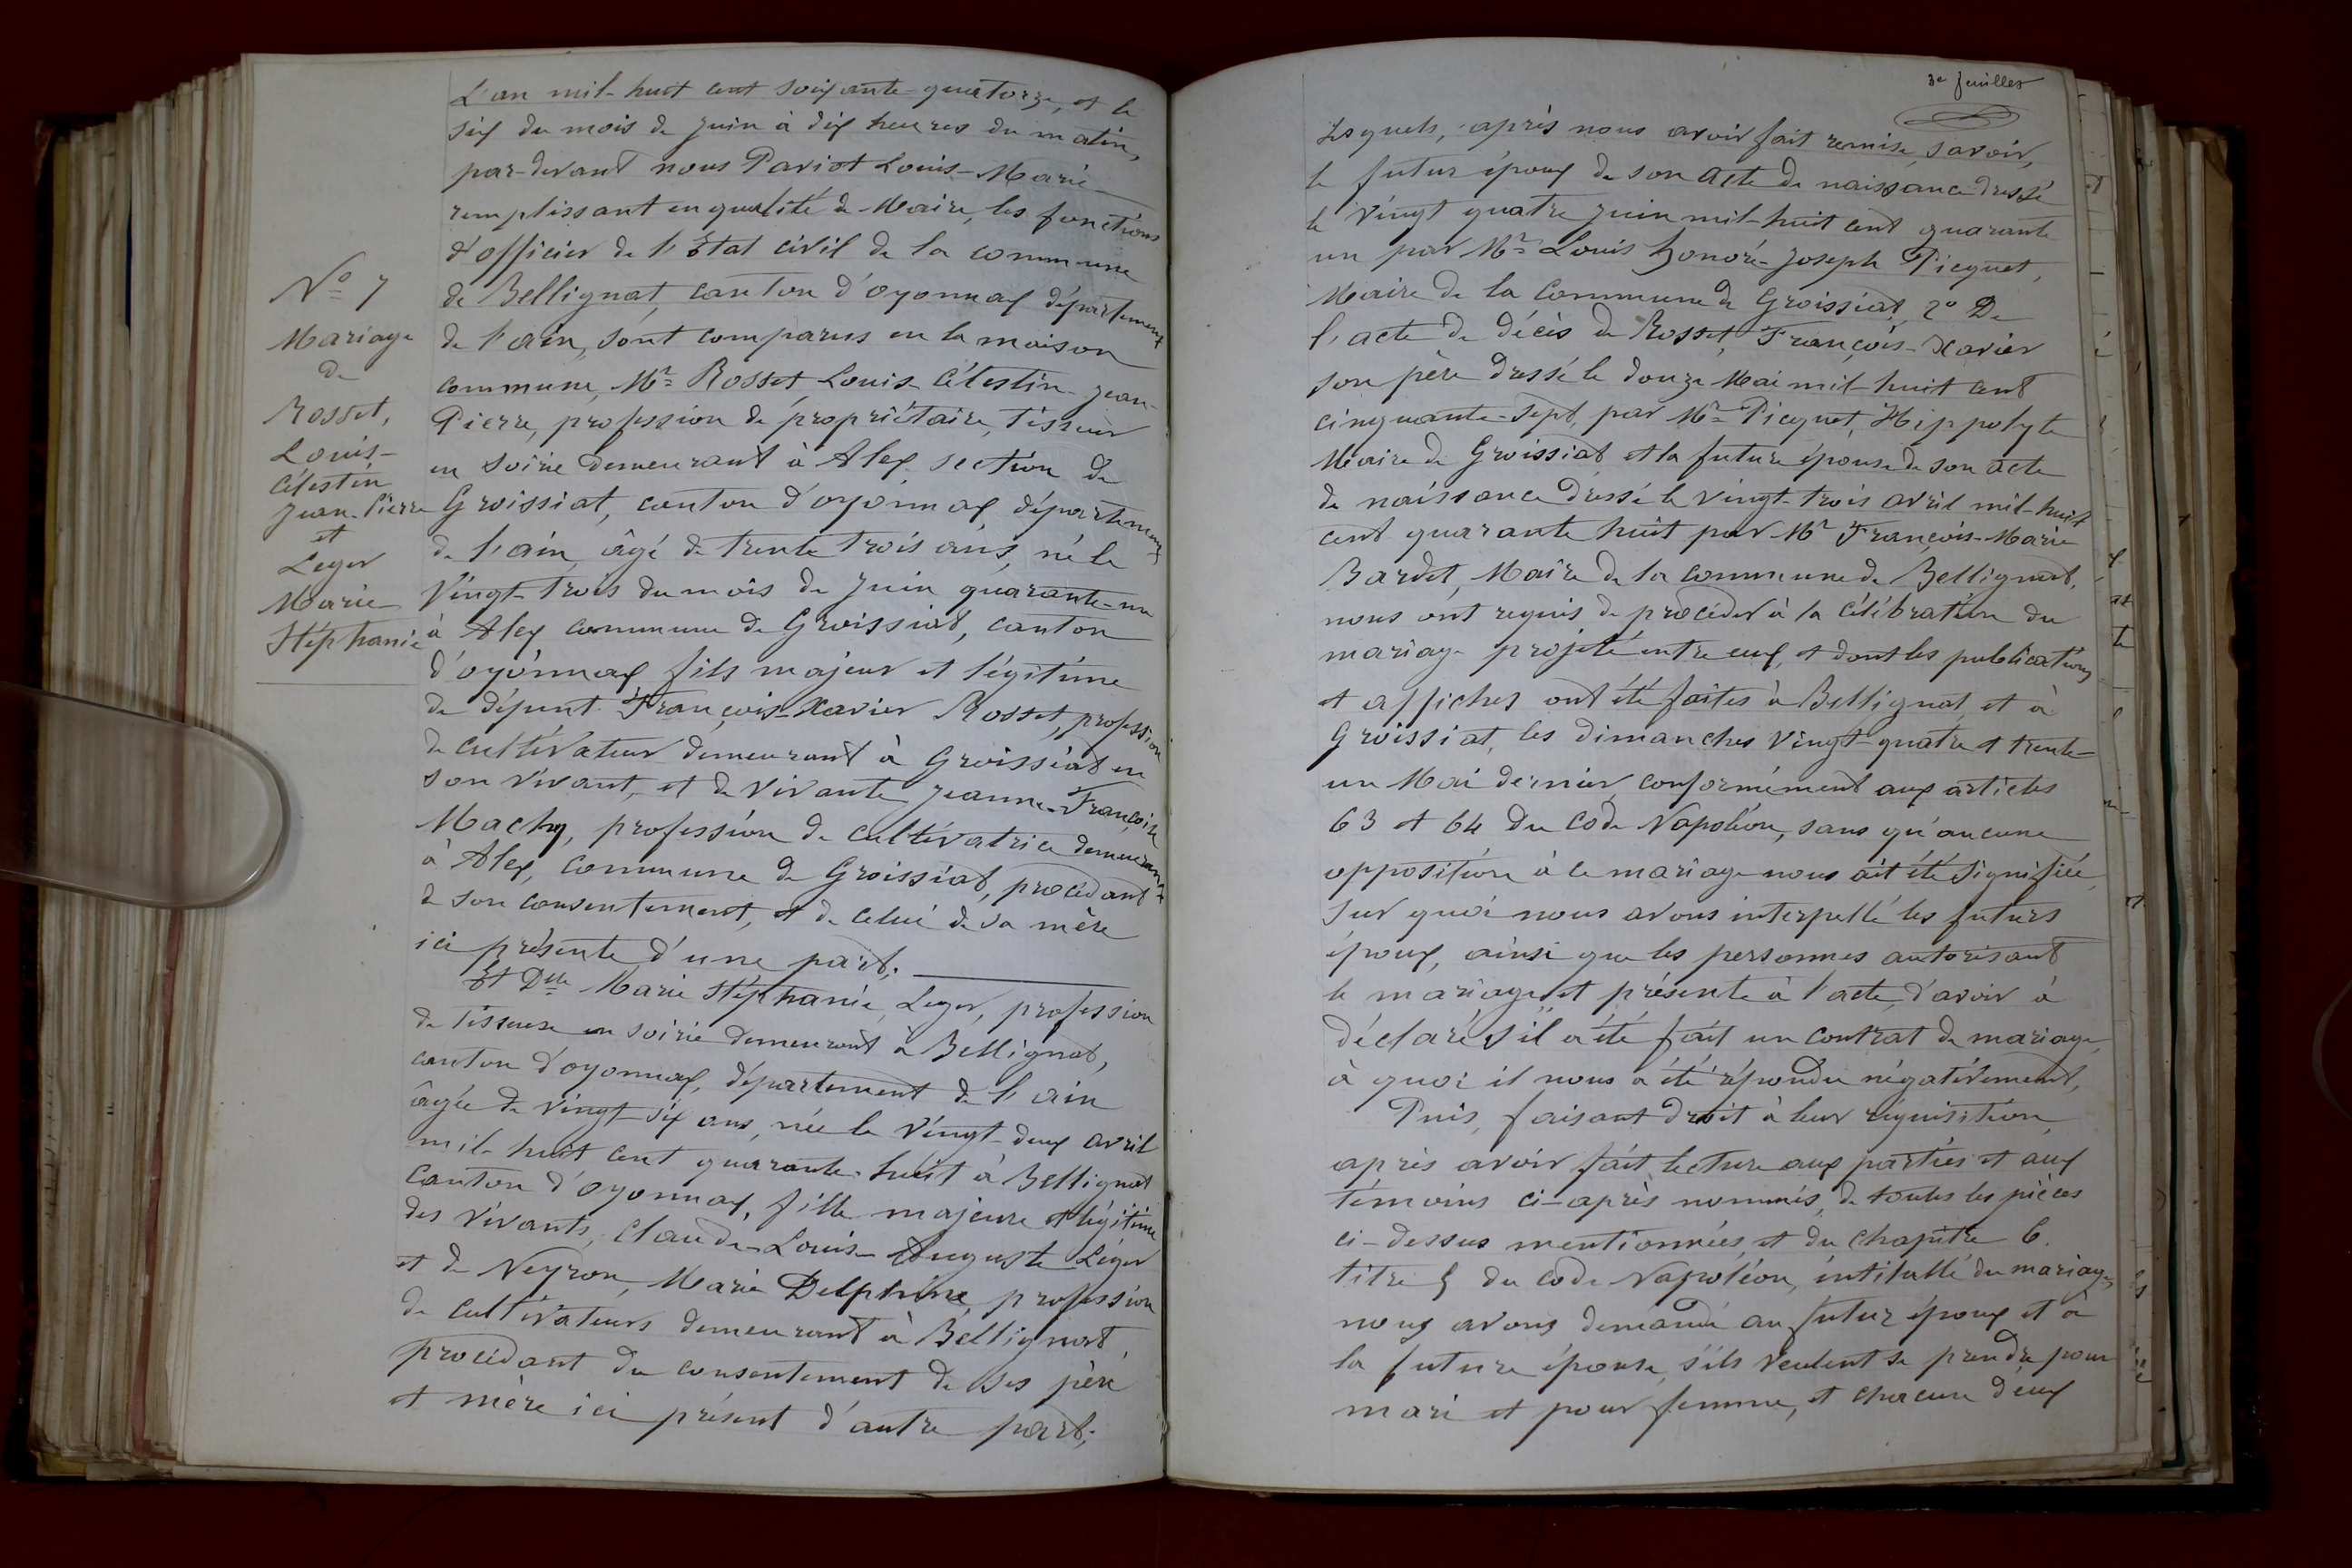 N° 7
Mariage
de
Rosset,
Louis-
Célestin
Jean-Pierre
et
Leger
Marie
Stéphanie
L'an mil-huit cent soixante-quatorze, et le
six du mois de Juin à dix heures du matin,
par-devant nous Pariot Louis-Marie
remplissant en qualité de Maire, les fonctions
d'officier de l'État civil de la commune
de Bellignat, canton d'oyonnax département
de l'ain, sont comparus en la maison
commune, Mr Rosset, Louis Célestin Jean-
Pierre, profession de propriétaire, tisseur
en soirie demeurant à Alex section de
Groissiat, canton d'oyonnax, département
de l'ain, âgé de trente trois ans, né le
Vingt-trois du mois de Juin quarante-un
à Alex commune de Groissiat, canton
d'oyonnax fils majeur et légitime
de défunt François-Xavier Rosset, profession
de cultivateur demeurant à Groissiat en
son vivant, et de vivante Jeanne-Françoise
Machy, profession de cultivatrice demeurant
à Alex, commune de Groissiat, procédant
de son consentement, et de celui de sa mère
ici présente d'une part.
Et Dlle Marie Stéphanie, Leger, profession
de tisseuse en soirie demeurant à Bellignat,
canton d'oyonnax, département de l'ain
âgée de vingt-six ans, née le vingt-deux avril
mil-huit cent quarante-huit à Bellignat
canton d'oyonnax, fille majeure et légitime
des vivants, Claude-Louis-Auguste Léger
et de Neyron, Marie Delphine, profession
de cultivateurs demeurant à Bellignat
procédant du consentement de ses père
et mère ici présent d'autre part;
3e feuillet
Lesquels, après nous avoir fait remise, savoir,
le futur époux de son acte de naissance dressé
le vingt quatre juin mil-huit cent quarante
un par Mr Louis Honoré-Joseph Picquet,
Maire de la Commune de Groissiat, 2° De
l'acte de décès de Rosset, François-Xavier
son père dressé le douze Mai mil-huit cent
cinquante-sept, par Mr Picquet, Hippolyte
Maire de Groissiat et la future épouse de son acte
de naissance dressé le vingt-trois avril mil-huit
cent quarante huit par Mr François-Marie
Bardet, Maire de la commune de Bellignat,
nous ont requis de procéder à la célébration du
mariage projeté entre eux, et dont les publications
et affiches ont été faites à Bellignat et à
Groissiat, les dimanches vingt-quatre et trente-
un Mai dernier, conformément aux articles
63 et 64 du Code Napoléon, sans qu'aucune
opposition à ce mariage nous ait été signifiée,
sur quoi nous avons interpellé les futurs
époux, ainsi que les personnes autorisant
le mariage et présente à l'acte, d'avoir à
déclaré s'il a été fait un contrat de mariage,
à quoi il nous a été répondu négativement,
Puis, faisant droit à leur réquisition,
après avoir fait lecture aux parties et aux
témoins ci-après nommés, de toutes les pièces
ci-dessus mentionnées, et du Chapitre 6.
titre 5 du code Napoléon, intitullé du mariage,
nous avons demandé au futur époux et à
la future épouse, s'ils veulent se prendre pour
mari et pour femme, et chacun d'eux